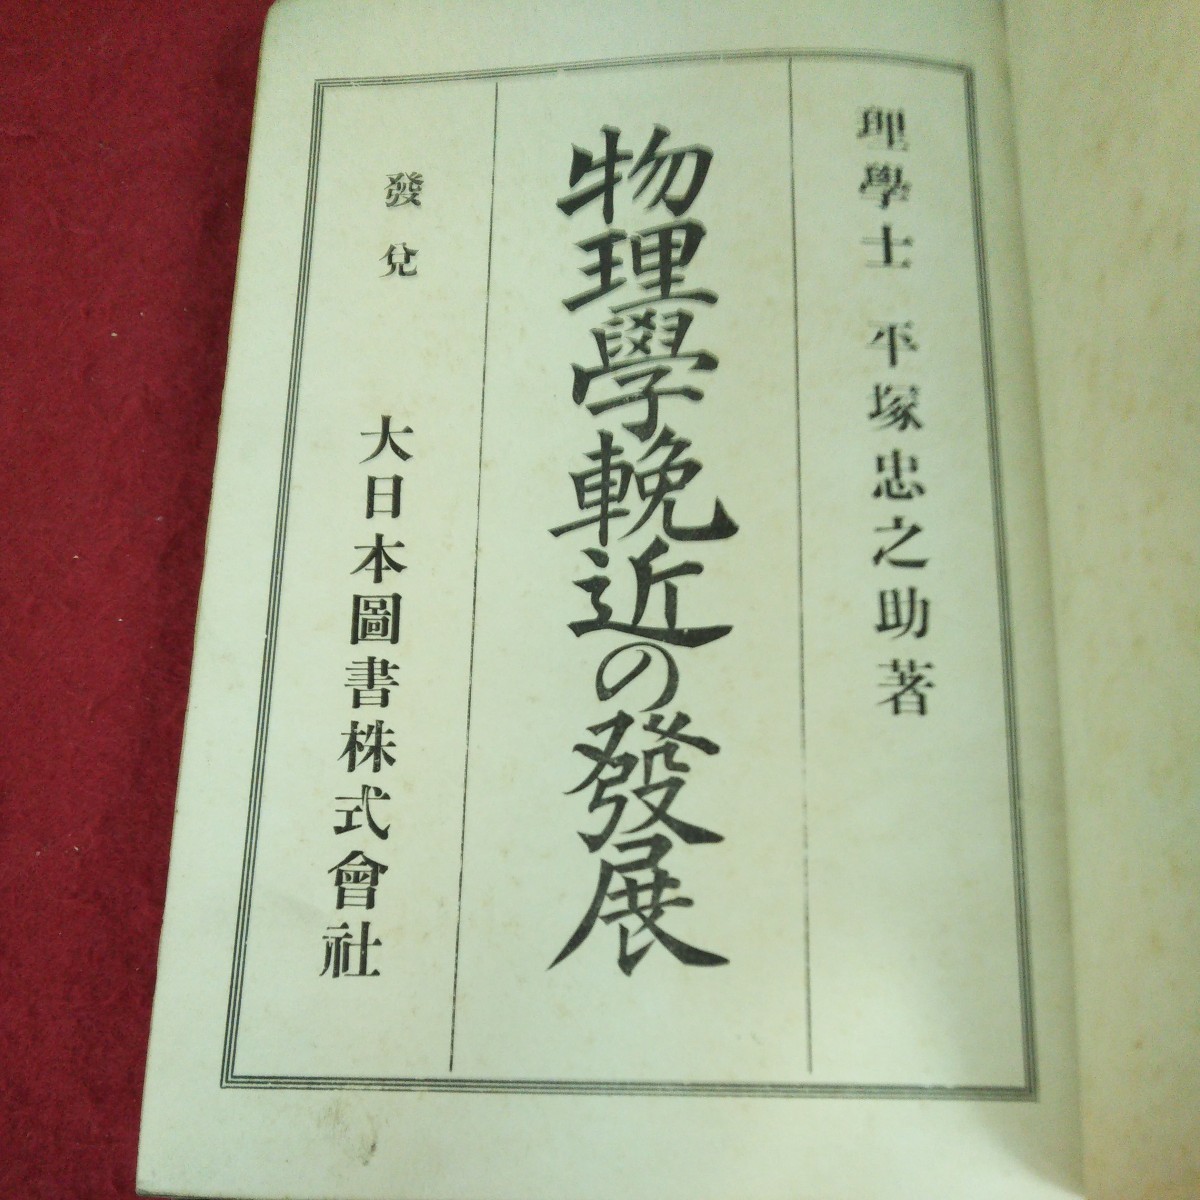 理學士 平塚忠之助著
物理學輓近の發展
發兌 大日本圖書株式會社